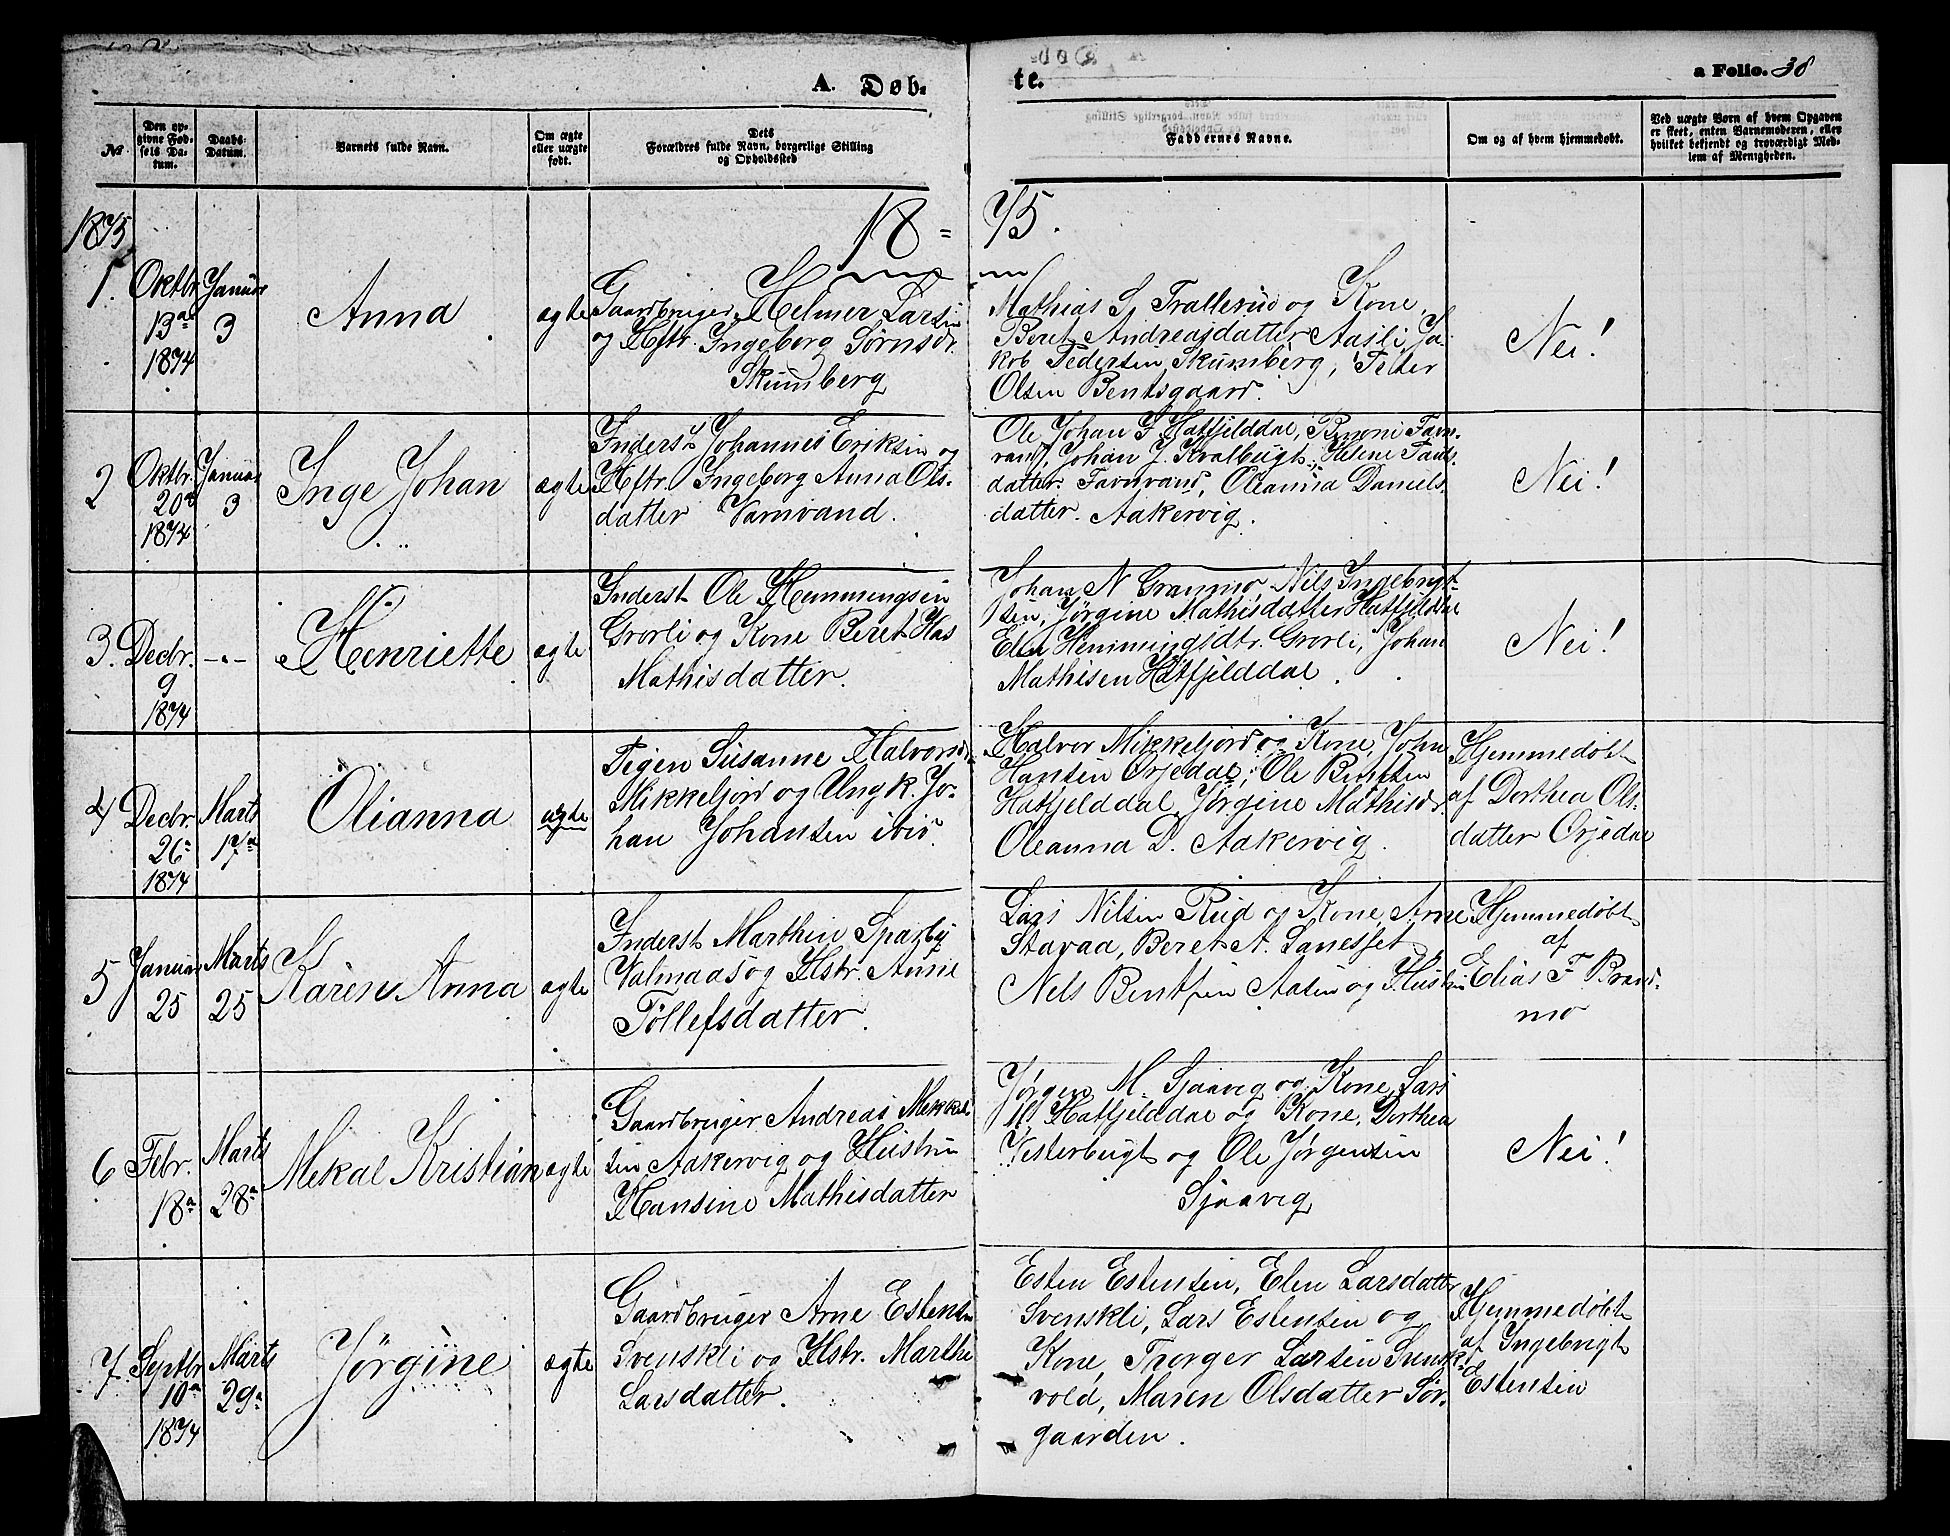 A. Døb-
te.
a Folio. 38
№
Den op-
givne Fød-
sels Da-
tum.
Daabs-
Datum.
Barnets fulde Navn.
Om ægte
eller uægte
født.
Dets
Forældres fulde Navn, borgerlige Stilling
og Opholdssted
Faddernes Navne.
Om og af hvem hjemmedøbt.
Ved uægte Børn af hvem Opgaven
er skeet, enten Barnemoderen, eller
hvilket bekjendt og troværdigt Med-
lem af Menigheden.
1875
18=
75.
1.
Oktbr
13a
1874
Januar
3
Anna
ægte
Gaardbruger Helmer Larsen
og Hstr. Ingeborg Sørnsdr.
Skumberg
Mathias S. Trallerud og Kone,
Beret Andreasdatter Aasli, Ja-
kob Pedersen Skumberg, Peter
Olsen Bentsgaard.
Nei!
2
Oktbr.
20a
1874
Januar
3
Inge Johan
ægte
Inderst Johannes Eriksen og
Hstr. Ingeborg Anna Ols-
datter Varnvand.
Ole Johan Hatfjelddal, Favn-
vand, Johan J. Kvalbugt, Helene Pauls-
datter Favnvand, Oleanna Daniels-
datter Aakervig.
Nei!
3.
Decbr.
9
1874
-"-
Henriette
ægte
Inderst Ole Hemmingsen
Grorli og Kone Beret
Mathisdatter.
Johan N Granmo, Nils Ingebrigt-
sen, Jørgine Mathisdatter Hatfjelddal
Elen Hemmingsdtr. Grorli, Johan
Mathisen Hatfjelddal.
Nei!
4
Decbr.
26
1874
Marts
17a
Olianna
uægte
Pigen Susanne Halvorsdr.
Mikkeljord og Ungk. Jo-
han Johansen ibid.
Halvor Mikkeljord og Kone, John
Hansen Ørjedal, Ole Bentsen
Hatfjelddal, Jørgine Mathisdr.
Oleanna D. Aakervig.
Hjemmedøbt
af Dorthea Ols-
datter Ørjedal
5
Januar
25
Marts
25
Karen Anna
ægte
Inderst Marthin Sparby
Valmaas og Hstr. Anne
Tollefsdatter.
Lars Nilsen Rud og Kone, Arne
Stavaa, Beret A. Lanesset
Nels Bentsen Aasen og Hustru
Hjemmedøbt
af
Elias F Brand-
mo
6
Febr.
18a
Marts
28a
Mekal Kristian
ægte
Gaardbruger Andreas Mekkel-
sen Aakervig og Hustru
Hansine Mathisdatter
Jørgen M. Sjaavig og Kone, Lars
M Hatfjelddal og Kone, Dorthea
Vesterbugt og Ole Jørgensen
Sjaavig
Nei!
7
Septbr
10a
1874
Marts
29a
Jørgine
ægte
Gaardbruger Arne Estensen
Svenskli og Hstr. Marthe
Larsdatter.
Esten Estensen, Elen Larsdatter
Svenskli, Lars Estensen og
Kone, Thorger Larsen Svensk-
vold, Maren Olsdatter Sør-
gaarden.
Hjemmedøbt
af Ingebrigt
Estensen